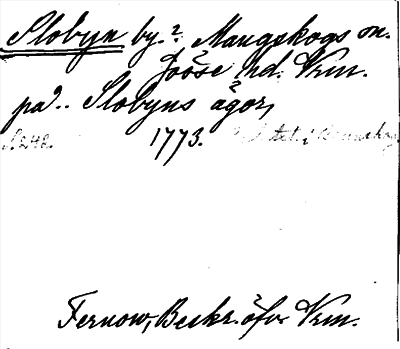 Slobyn by.? Mangskogs sn.
Jösse hd. Vrm.
på.. Slobyns ägor,
S. 242. 1773.
Fernow, Beskr. öfv. Vrm.